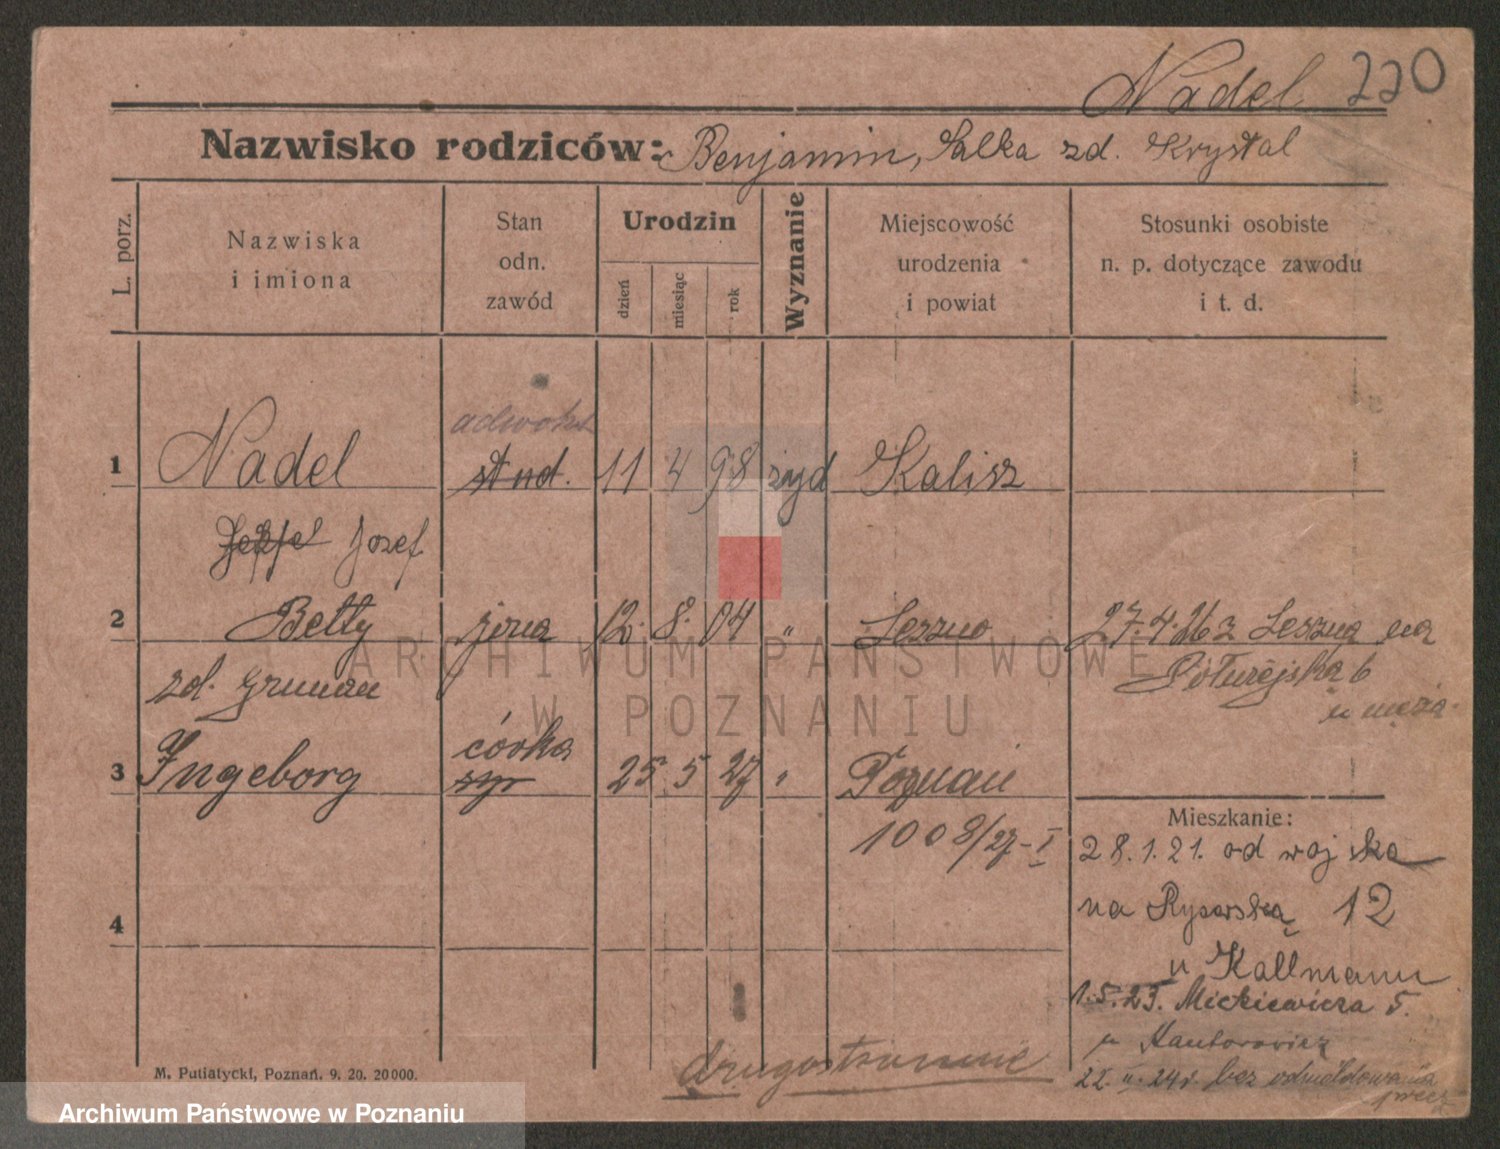 Nadel 220
Nazwisko rodziców: Benjamin, Salka zd. Krystal
L. porz.
Nazwiska
i imiona
Stan
odn.
zawód
Urodzin
dzień
miesiąc
rok
Wyznanie
Miejscowość
urodzenia
i powiat
Stosunki osobiste
n. p. dotyczące zawodu
i t. d.
adwokat
1 Nadel stud. 11 4 98 żyd Kalisz
Josef
2 Betty żona 12. 8. 04 " Leszno 27.4.26 z Leszna na
zd. Gruman Półwiejska 6
u męża
córka
3 Ingeborg syn 25 5 27 " Poznań
1008/27-I
Mieszkanie:
28.1.21. od wojska
na Rycerską 12
u Kallmann
4
1.5.23. Mickiewicza 5.
u Kantorowicz
drugostronnie
22. II. 24 r. bez odmeldowania
M. Putiatycki, Poznań. 9. 20. 20000.
ARCHIWUM PAŃSTWOWE
W POZNANIU
Archiwum Państwowe w Poznaniu